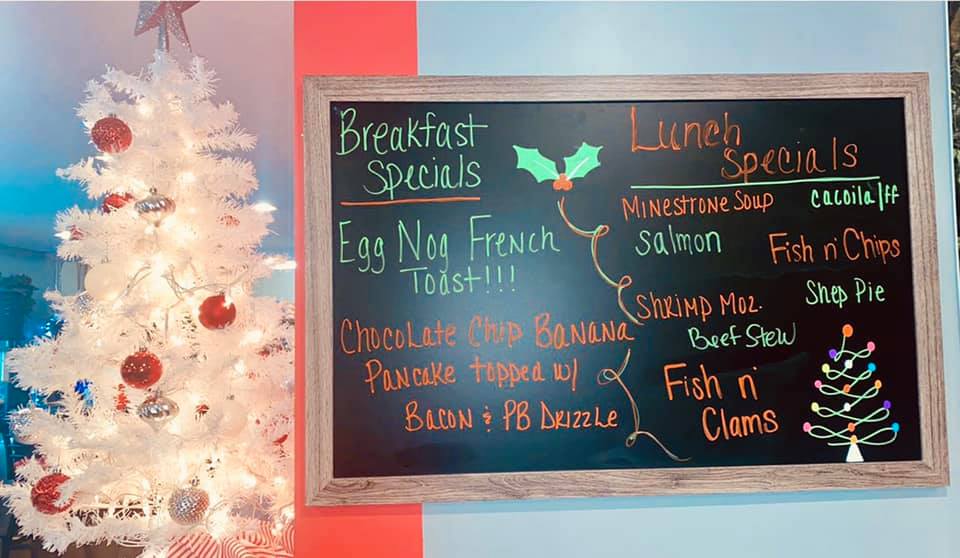 Breakfast
Specials
Egg Nog French
Toast!!!
Chocolate Chip Banana
Pancake topped w/
Bacon & PB Drizzle
Lunch
Specials
Minestrone Soup
cacoila/ff
Salmon
Fish n' Chips
Shrimp Moz.
Shep Pie
Beef Stew
Fish n'
Clams